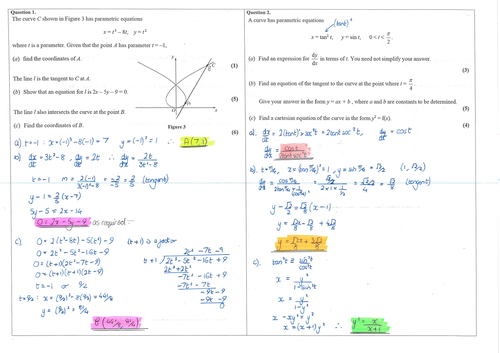 Question 1.
The curve C shown in Figure 3 has parametric equations
x = t³ – 8t, y = t²
where t is a parameter. Given that the point A has parameter t = –1,
(a) find the coordinates of A.
(1)
The line l is tangent to C at A.
(b) Show that an equation for l is 2x – 5y – 9 = 0.
(5)
The line l also intersects the curve at the point B.
(c) Find the coordinates of B.
Figure 3
(6)
a). t=-1 : x=(-1)³-8(-1) = 7 y=(-1)²=1 ∴ A(7,1)
b) dx/dt = 3t²-8, dy/dt = 2t ∴ dy/dx = 2t/3t²-8
t=-1 m = 2(-1)/3(-1)²-8 = -2/-5 = 2/5 (tangent)
y-1 = 2/5(x-7)
5y-5 = 2x-14
0=2x-5y-9 as required
c). 0 = 2(t³-8t)-5(t²)-9 (t+1) is a factor
0 = 2t³-5t²-16t-9
0=(t+1)(2t²-7t-9)
0=(t+1)(t+1)(2t-9)
t=-1 or 9/2
t=9/2 : x=(9/2)³-8(9/2) = 441/8
y = (9/2)² = 81/4
2t²-7t-9
t+1 2t³-5t²-16t-9
2t³+2t²
-7t²-16t+9
-7t²-7t
-9t-9
-9t-9
B(441/8, 81/4)
Question 2.
(tant)²
A curve has parametric equations
x = tan² t, y = sin t, 0 < t < π/2.
(a) Find an expression for dy/dx in terms of t. You need not simplify your answer.
(3)
(b) Find an equation of the tangent to the curve at the point where t = π/4.
Give your answer in the form y = ax + b, where a and b are constants to be determined.
(5)
(c) Find a cartesian equation of the curve in the form y² = f(x).
(4)
a). dx/dt = 2(tant)'×sec²t = 2tantsec²t, dy/dt = cost
dy/dx = cost/2tantsec²t
b). t=π/4, x=(tanπ/4)²=1, y=sinπ/4=√2/2 (1, √2/2)
y-√2/2 = √2/8(x-1)
c).
tan²t ≡ sin²t/cos²t
x = y²/1-sin²t
x = y²/1-y²
x-xy²=y²
x=(x+1)y² ∴ y²=x/x+1